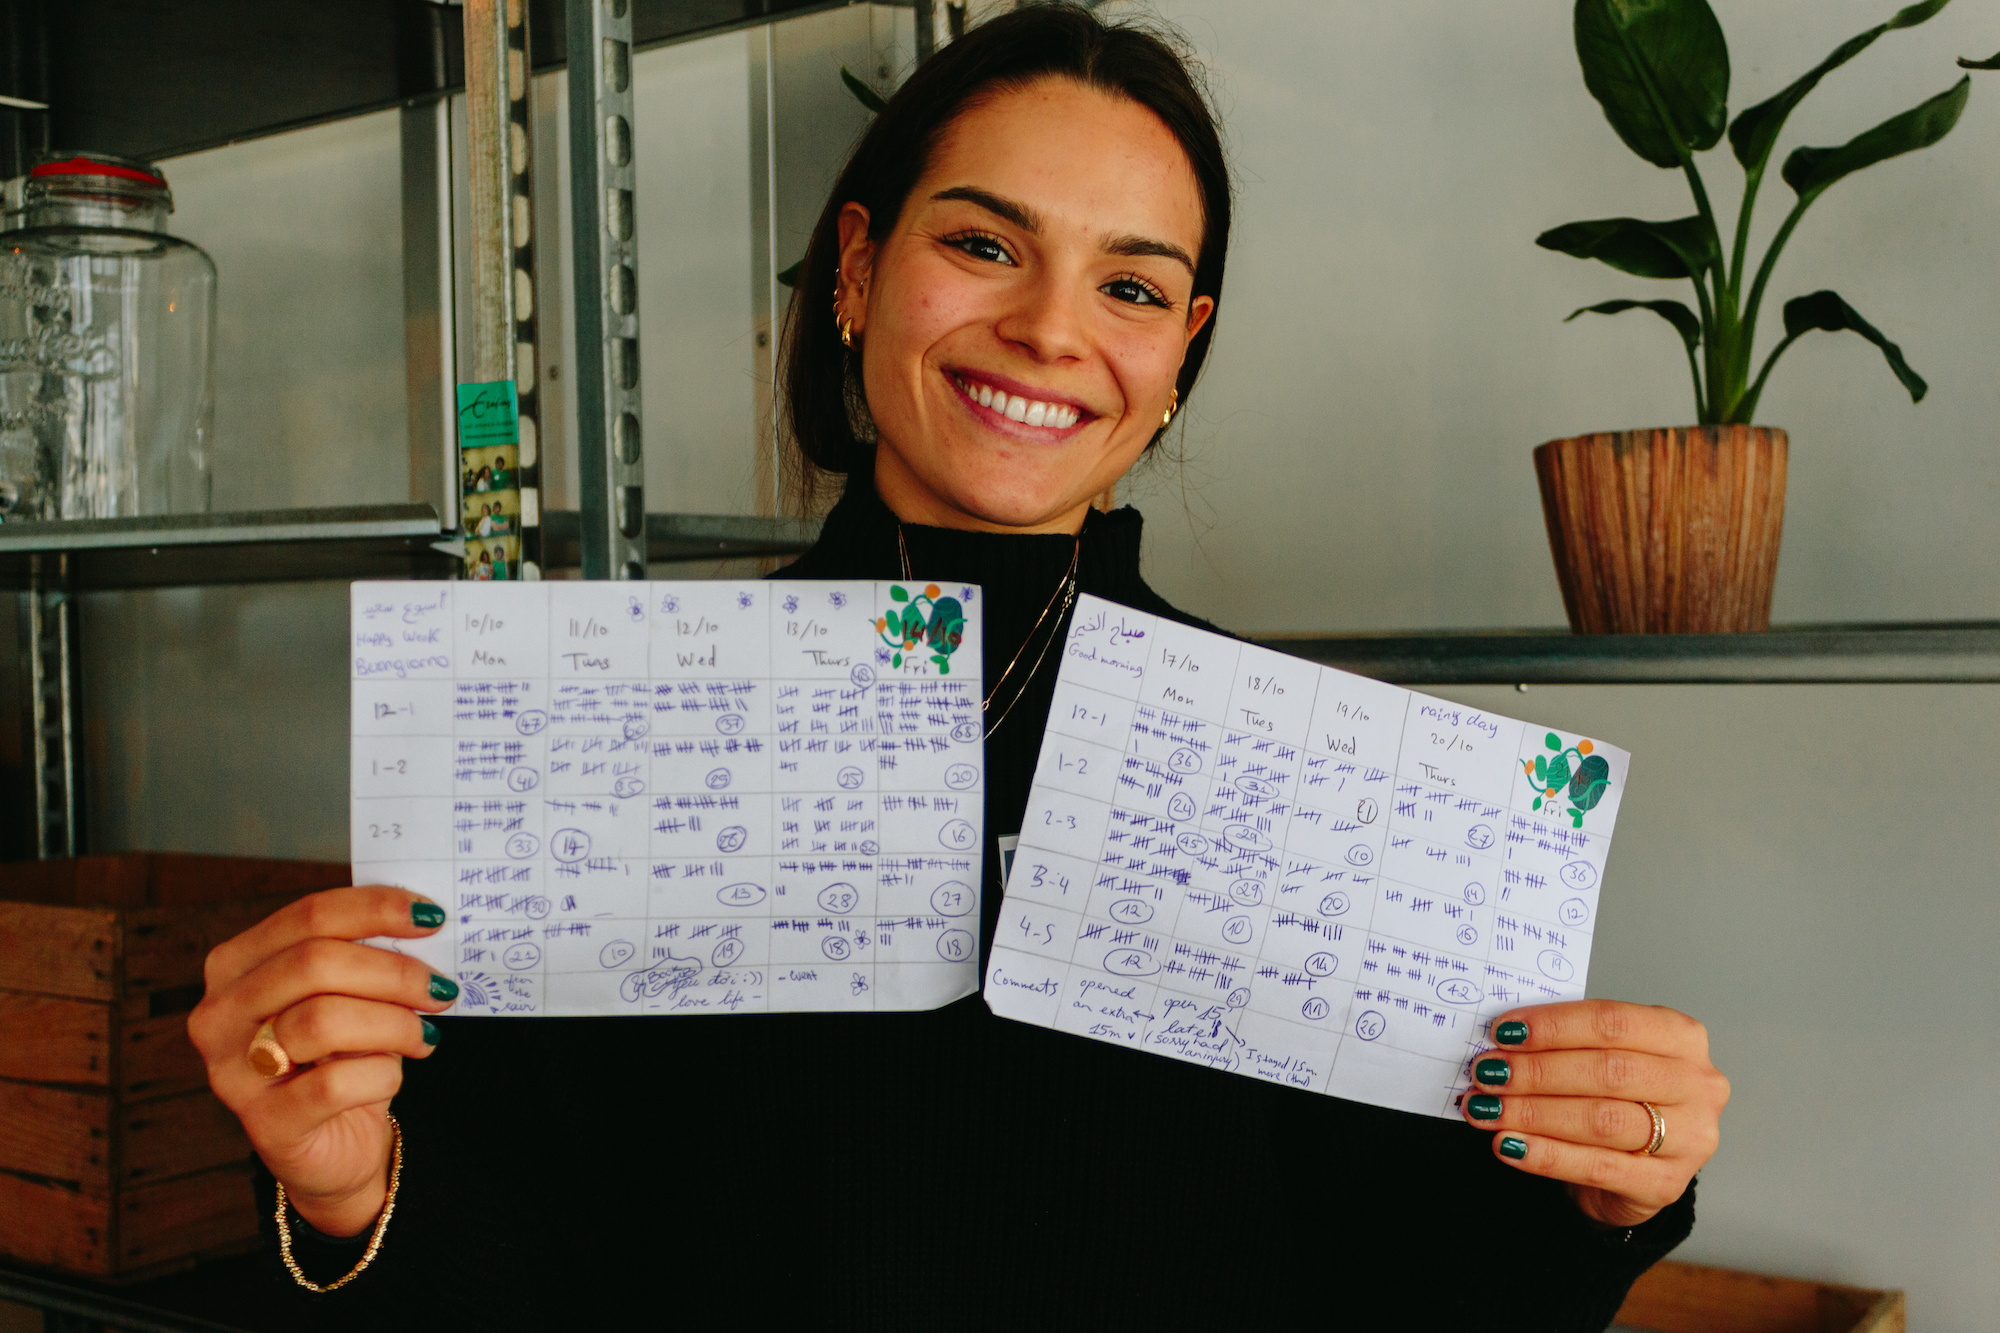 أسبوع سعيد
Happy Week
Buongiorno
10/10 11/10 12/10 13/10 14/10
Mon Tues Wed Thurs Fri
12-1 47 60 37 48 68
1-2 41 35 25 20
2-3 33 14 28 32 16
30 13 28 27
21 10 19 18 18
after the rain
you đời :))
- love life -
- event
صباح الخير
Good morning
17/10 18/10 19/10 20/10
rainy day
Mon Tues Wed Thurs Fri
12-1 36 31 21 27 36
1-2 24 29 10 14 12
2-3 45 29 20 16 19
3-4 12 10 14 42
4-5 12 29 11 26
Comments
opened
an extra
15m
open 15
late
(sorry had
an injury)
I stayed 15m.
more